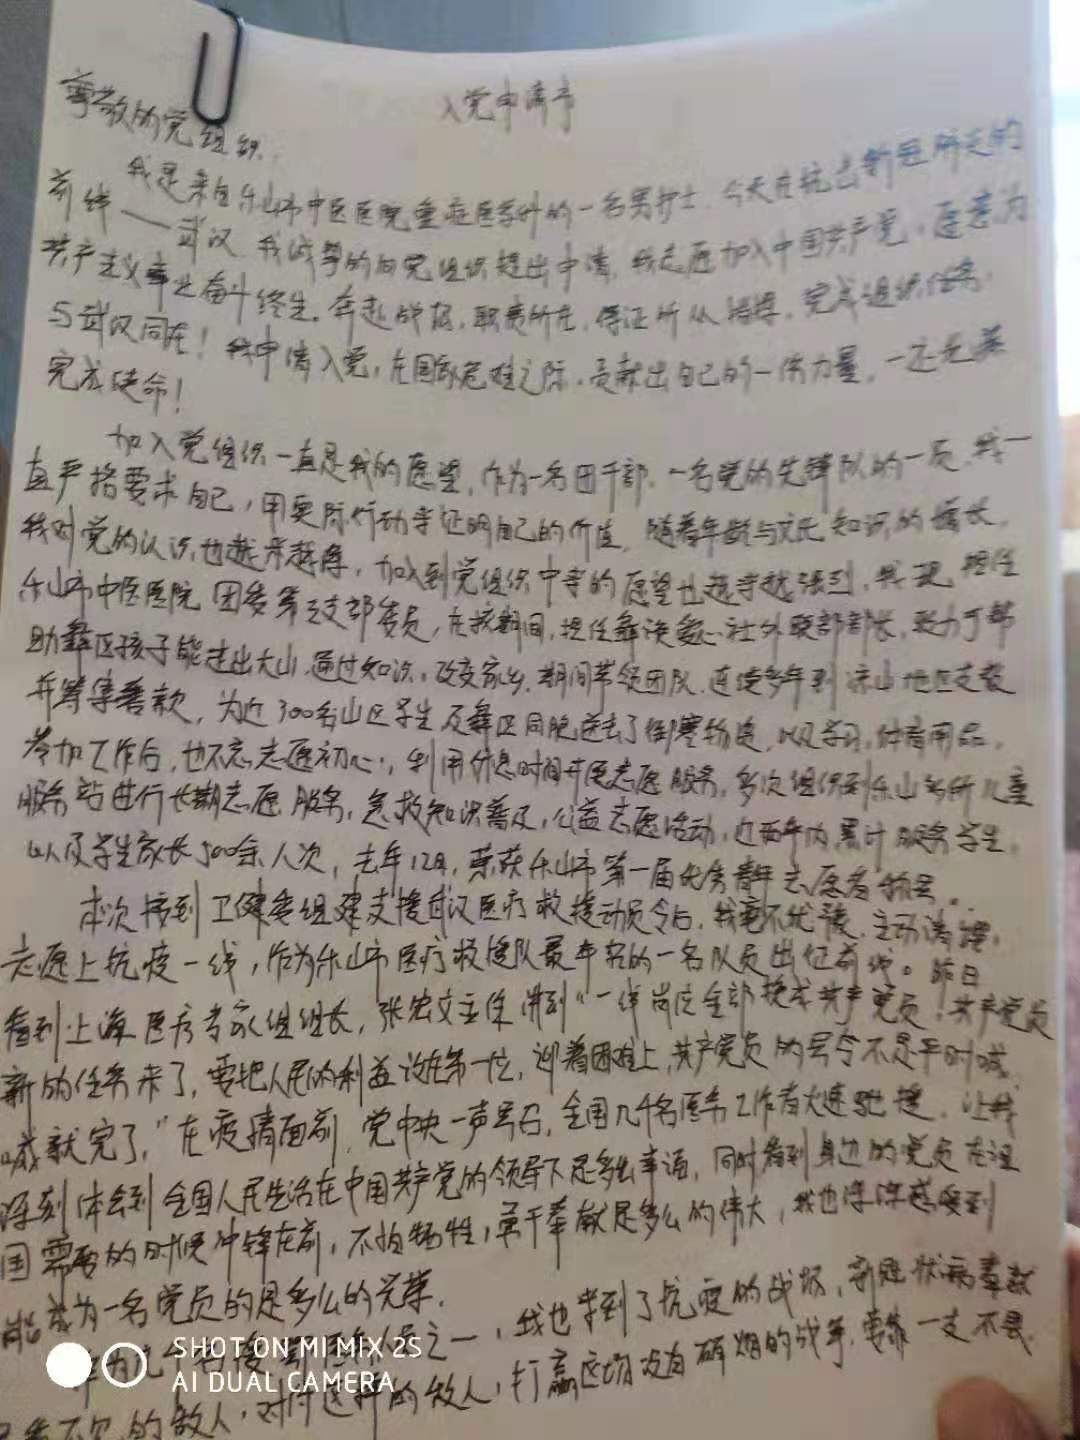 入党申请书
尊敬的党组织:
我是来自乐山市中医医院重症医学科的一名男护士,今天在抗击新冠肺炎的
前线——武汉,我诚挚的向党组织提出申请,我志愿加入中国共产党,愿意为
共产主义事业奋斗终生。奔赴战场,职责所在,保证听从指挥,完成组织任务,
与武汉同在!我申请入党,在国家危难之际,贡献出自己的一份力量,一定光荣
完成使命!
加入党组织一直是我的愿望,作为一名团干部,一名党的先锋队的一员,我一
直严格要求自己,用实际行动来证明自己的价值,随着年龄与文化知识的增长,
我对党的认识也越来越深,加入到党组织中来的愿望也越来越强烈,我现担任
乐山市中医医院团委第三支部委员,在校期间,担任彝海爱心社外联部部长,致力于帮
助彝区孩子能走出大山,通过知识,改变家乡,期间带领团队,连续多年到凉山地区支教
并筹集善款,为近300名山区学生及彝区同胞送去了御寒物资,以及学习,体育用品,
参加工作后,也不忘志愿初心,利用休息时间开展志愿服务,多次组织到乐山多所儿童
服务站进行长期志愿服务,急救知识普及,公益志愿活动,近两年内累计服务学生,
以及学生家长500余人次,去年12月,荣获乐山市第一届优秀青年志愿者称号。
本次接到卫健委组建支援武汉医疗救援动员令后,我毫不犹豫,主动请缨,
志愿上抗疫一线,作为乐山市医疗救援队最年轻的一名队员出征前线。昨日
看到上海医疗专家组组长,张宏文主任讲到“一线岗位全部换成共产党员!共产党员
新的任务来了,要把人民的利益放在第一位,迎着困难上,共产党员的号令不是平时喊
喊就完了,”在疫情面前,党中央一声号召,全国几千名医务工作者火速驰援,让我
深刻体会到全国人民生活在中国共产党的领导下是多么幸福,同时看到身边的党员在祖
国需要的时候冲锋在前,不怕牺牲,勇于奉献是多么的伟大,我也深深感受到
能成为一名党员的是多么的光荣。
作为几千名医务人员之一,我也来到了抗疫的战场,新冠状病毒
的敌人,对付这样的敌人,打赢这场没有硝烟的战争,要靠一支不畏